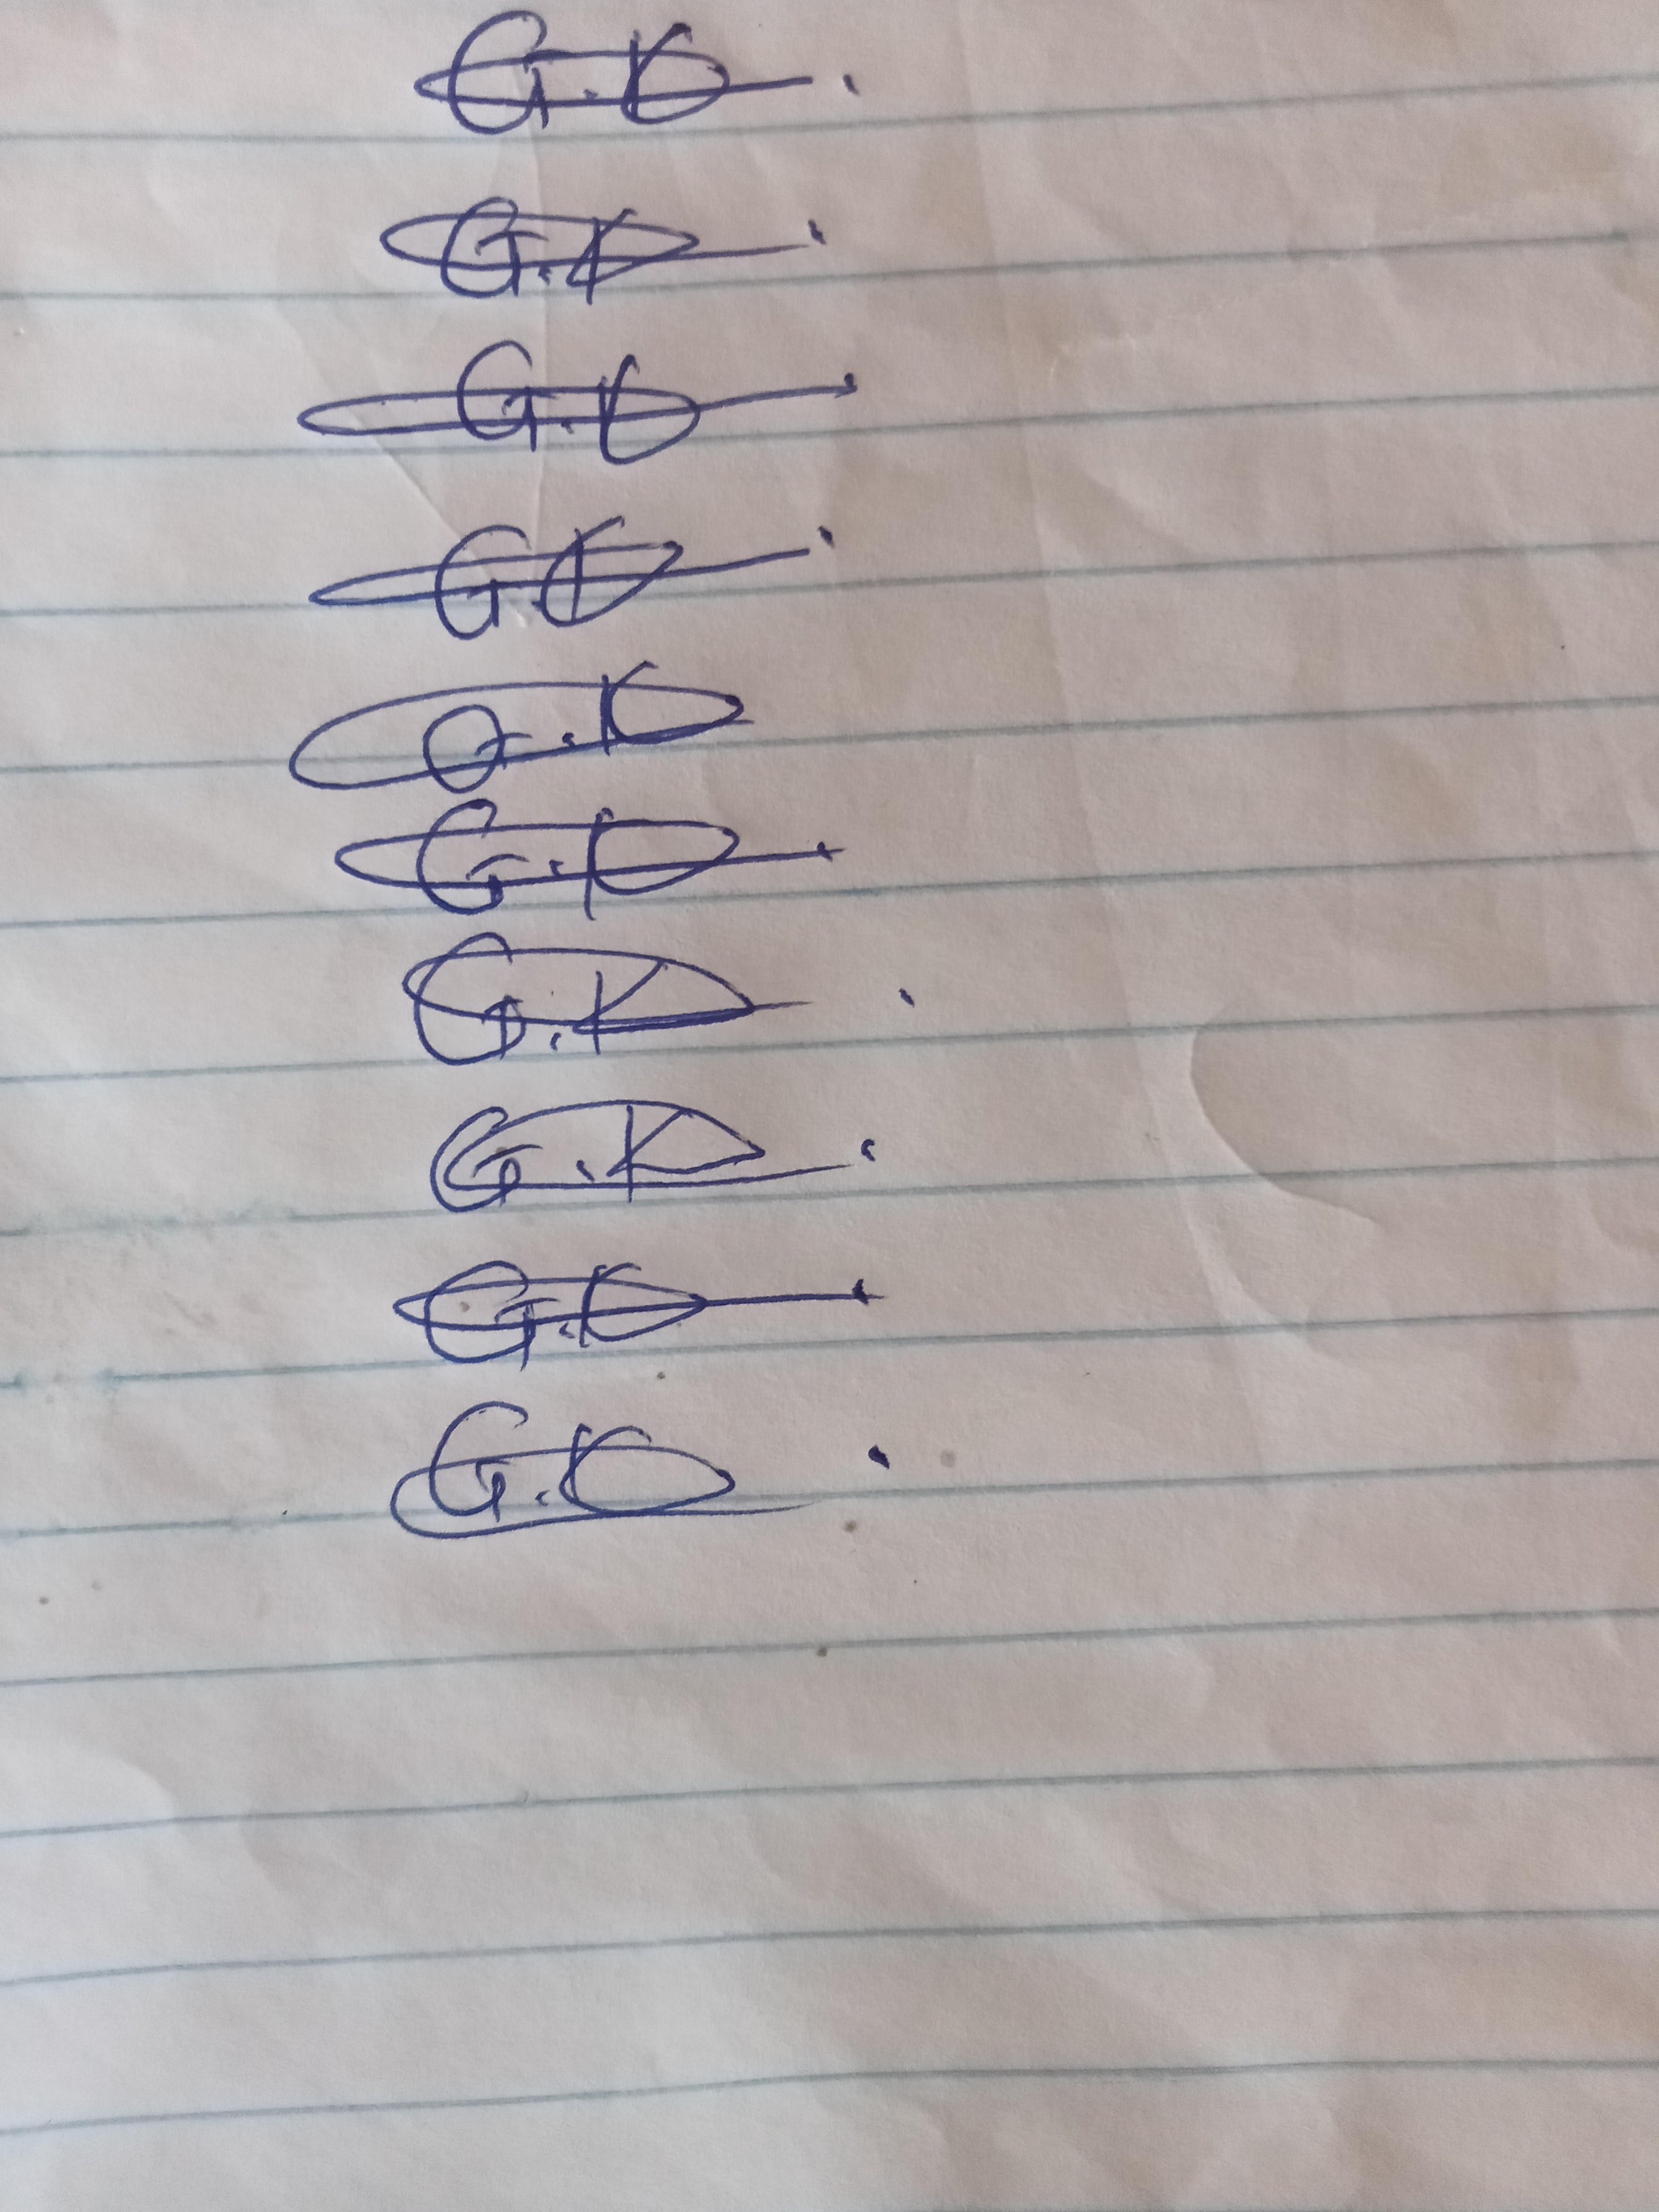 G.K.
G.K.
G.K.
G.K.
G.K
G.K.
G.K.
G.K.
G.K.
G.K.